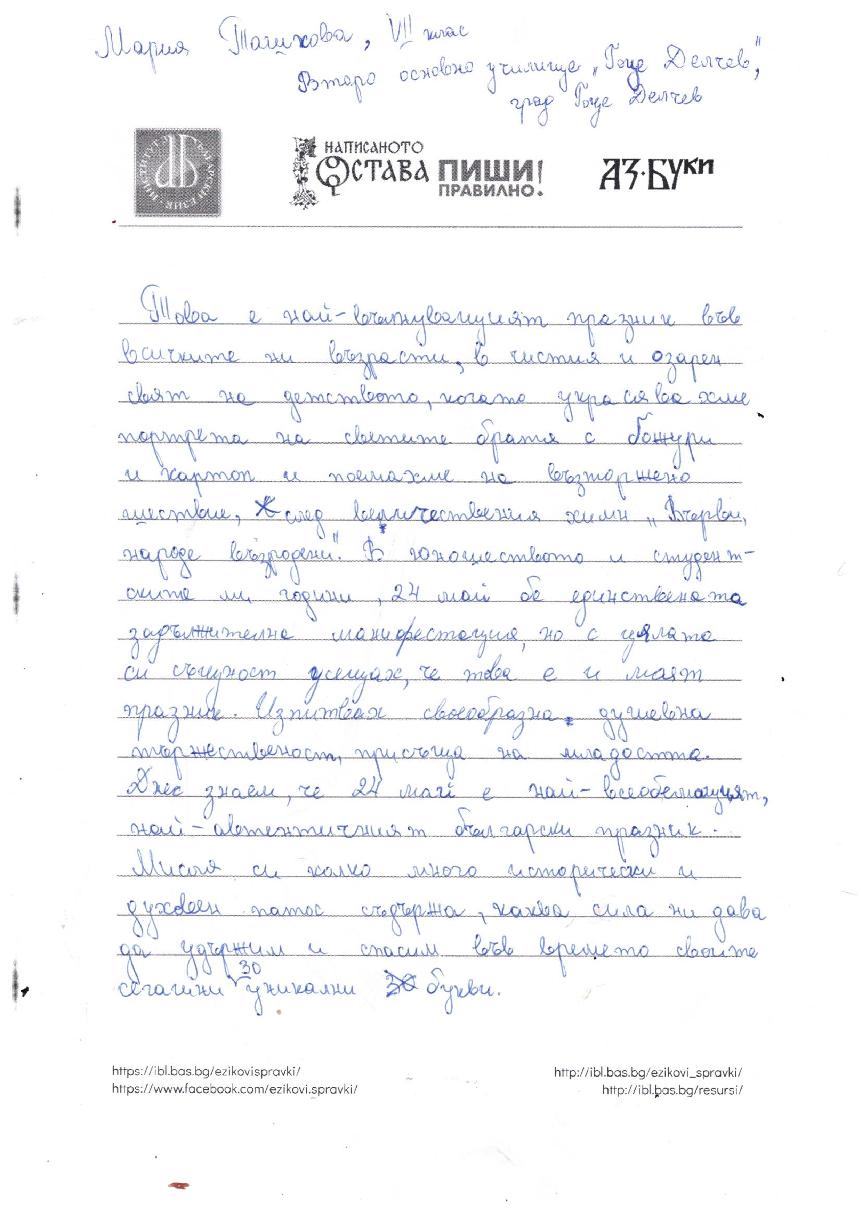 Мария Ташкова, VII клас
Второ основно училище „Гоце Делчев",
град Гоце Делчев
НАПИСАНОТО
ОСТАВА ПИШИ
ПРАВИЛНО!
АЗ·БУКИ
Това е най-вълнуващият празник във
всичките ни възрасти, в чистия и озарен
свят на детството, когато украсявахме
портрета на светите братя с божури
и картон и поемахме на възторжено
шествие, след величествения химн „Върви,
народе възродени". В юношеството и студент-
ските ми години, 24 май бе единствената
задължителна манифестация, но с цялата
си същност усещах, че това е и моят
празник. Изпитвах своеобразна душевна
тържественост, присъща на младостта.
Днес знаем, че 24 май е най-всеобемащият,
най-автентичният български празник.
Мисля си колко много исторически и
духовен патос съдържа, каква сила ни дава
да удържим и спасим във времето своите
сегашни 30 уникални букви.
https://ibl.bas.bg/ezikovispravki/ http://ibl.bas.bg/ezikovi_spravki/
https://www.facebook.com/ezikovi.spravki/ http://ibl.bas.bg/resursi/